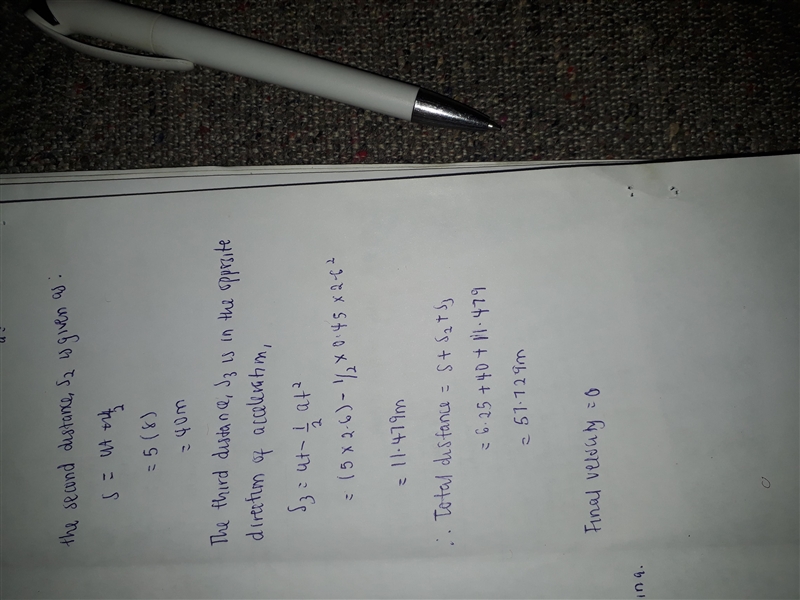 the second distance, S2 is given as:
S = ut +
= 5 (8)
= 40m
The third distance, S3 is in the opposite
direction of acceleration,
S3 = ut - 1/2 at²
= (5 x 2.6) - 1/2 x 0.45 x 2.6²
= 11.479m
∴ Total distance = S + S2 + S3
= 6.25 + 40 + 11.479
= 57.729m
Final velocity = 0